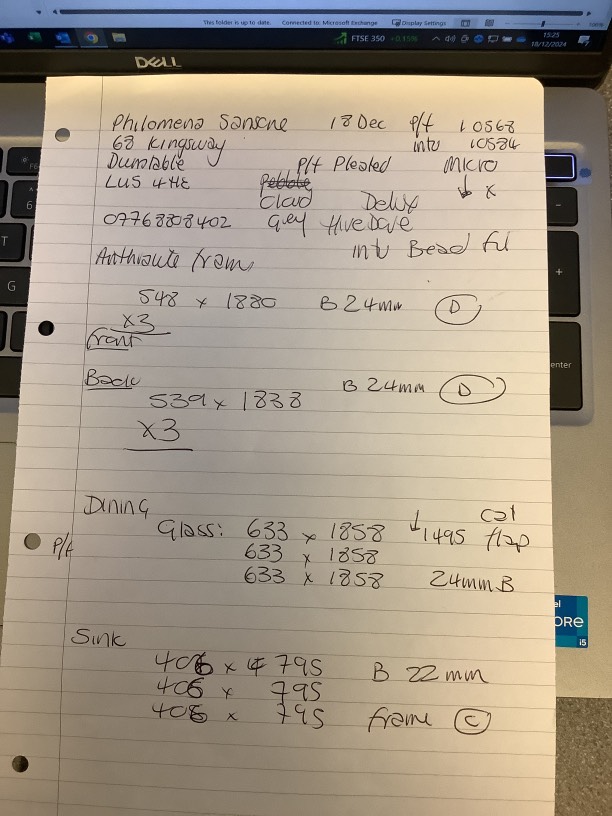 This folder is up to date. Connected to: Microsoft Exchange Display Settings
FTSE 350 +0.15% 15:25
18/12/2024
DELL
Philomena Sansone 18 Dec P/t 10568
68 Kingsway into 10584
Dunstable P/t Pleated Micro
LU5 4HE Pebble ↓ x
Cloud Delux
07768808402 Grey Hive Dove
into Bead ful
Anthracite from
548 x 1880 B 24mm D
x3
Front
Back B 24mm D
539 x 1838
x3
Dining cat
Glass: 633 x 1858 ↓1495 flap
P/t 633 x 1858
633 x 1858 24mm B
Sink
406 x 795 B 22mm
406 x 795
406 x 795 frame C
enter
CORE
i5